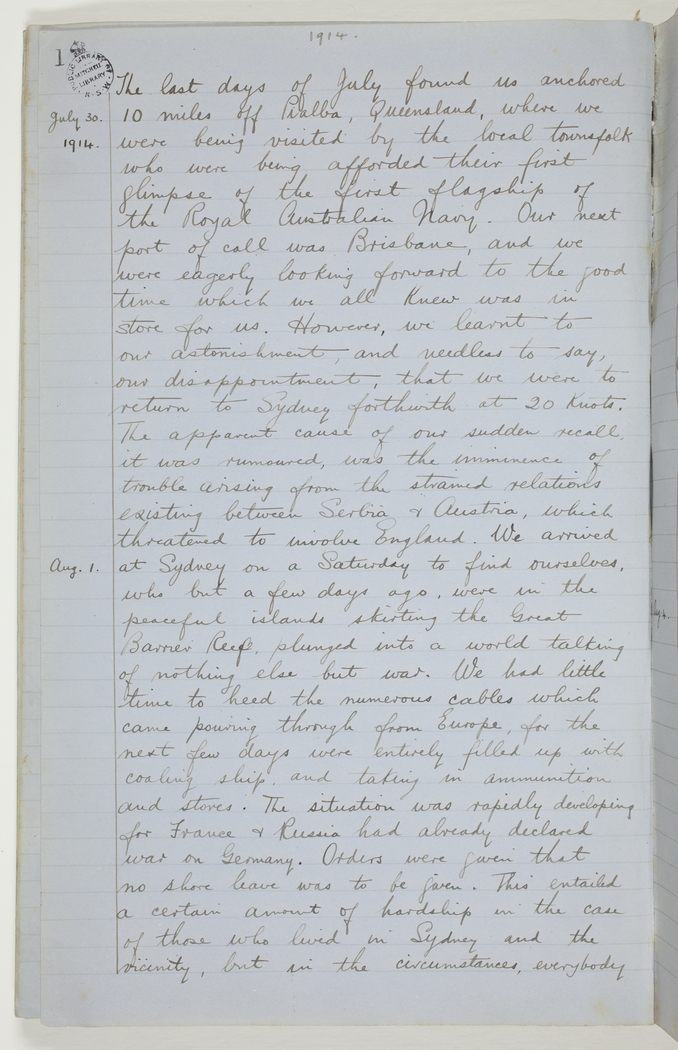 1914.
1
PUBLIC LIBRARY OF N.S.W.
MITCHELL
LIBRARY
The last days of July found us anchored
July 30.
10 miles off Pialba, Queensland, where we
1914.
were being visited by the local townsfolk
who were being afforded their first
glimpse of the first flagship of
the Royal Australian Navy. Our next
port of call was Brisbane, and we
were eagerly looking forward to the good
time which we all knew was in
store for us. However, we learnt to
our astonishment, and needless to say,
our disappointment, that we were to
return to Sydney forthwith at 20 knots.
The apparent cause of our sudden recall,
it was rumoured, was the imminence of
trouble arising from the strained relations
existing between Serbia & Austria, which
threatened to involve England. We arrived
Aug. 1.
at Sydney on a Saturday to find ourselves,
who but a few days ago, were in the
peaceful islands skirting the Great
Barrier Reef, plunged into a world talking
of nothing else but war. We had little
time to heed the numerous cables which
came pouring through from Europe, for the
next few days were entirely filled up with
coaling ship, and taking in ammunition
and stores. The situation was rapidly developing
for France & Russia had already declared
war on Germany. Orders were given that
no shore leave was to be given. This entailed
a certain amount of hardship in the case
of those who lived in Sydney and the
vicinity, but in the circumstances, everybody